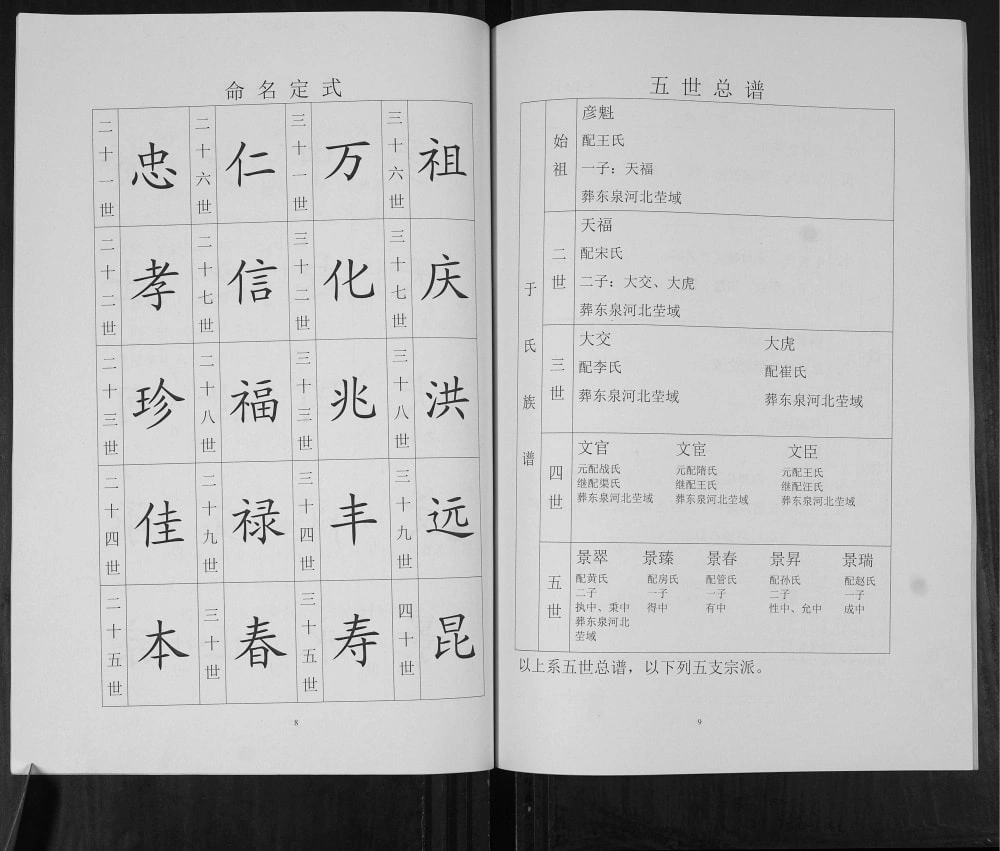 命名定式
二十一世 忠 二十六世 仁 三十一世 万 三十六世 祖
二十二世 孝 二十七世 信 三十二世 化 三十七世 庆
二十三世 珍 二十八世 福 三十三世 兆 三十八世 洪
二十四世 佳 二十九世 禄 三十四世 丰 三十九世 远
二十五世 本 三十世 春 三十五世 寿 四十世 昆
8
五世总谱
于氏族谱
始祖
彦魁
配王氏
一子：天福
葬东泉河北茔域
二世
天福
配宋氏
二子：大交、大虎
葬东泉河北茔域
三世
大交
配李氏
葬东泉河北茔域
大虎
配崔氏
葬东泉河北茔域
四世
文官
元配战氏
继配渠氏
葬东泉河北茔域
文宦
元配隋氏
继配王氏
葬东泉河北茔域
文臣
元配王氏
继配汪氏
葬东泉河北茔域
五世
景翠
配黄氏
二子
执中、秉中
葬东泉河北
茔域
景臻
配房氏
一子
得中
景春
配管氏
一子
有中
景昇
配孙氏
二子
性中、允中
景瑞
配赵氏
一子
成中
以上系五世总谱，以下列五支宗派。
9